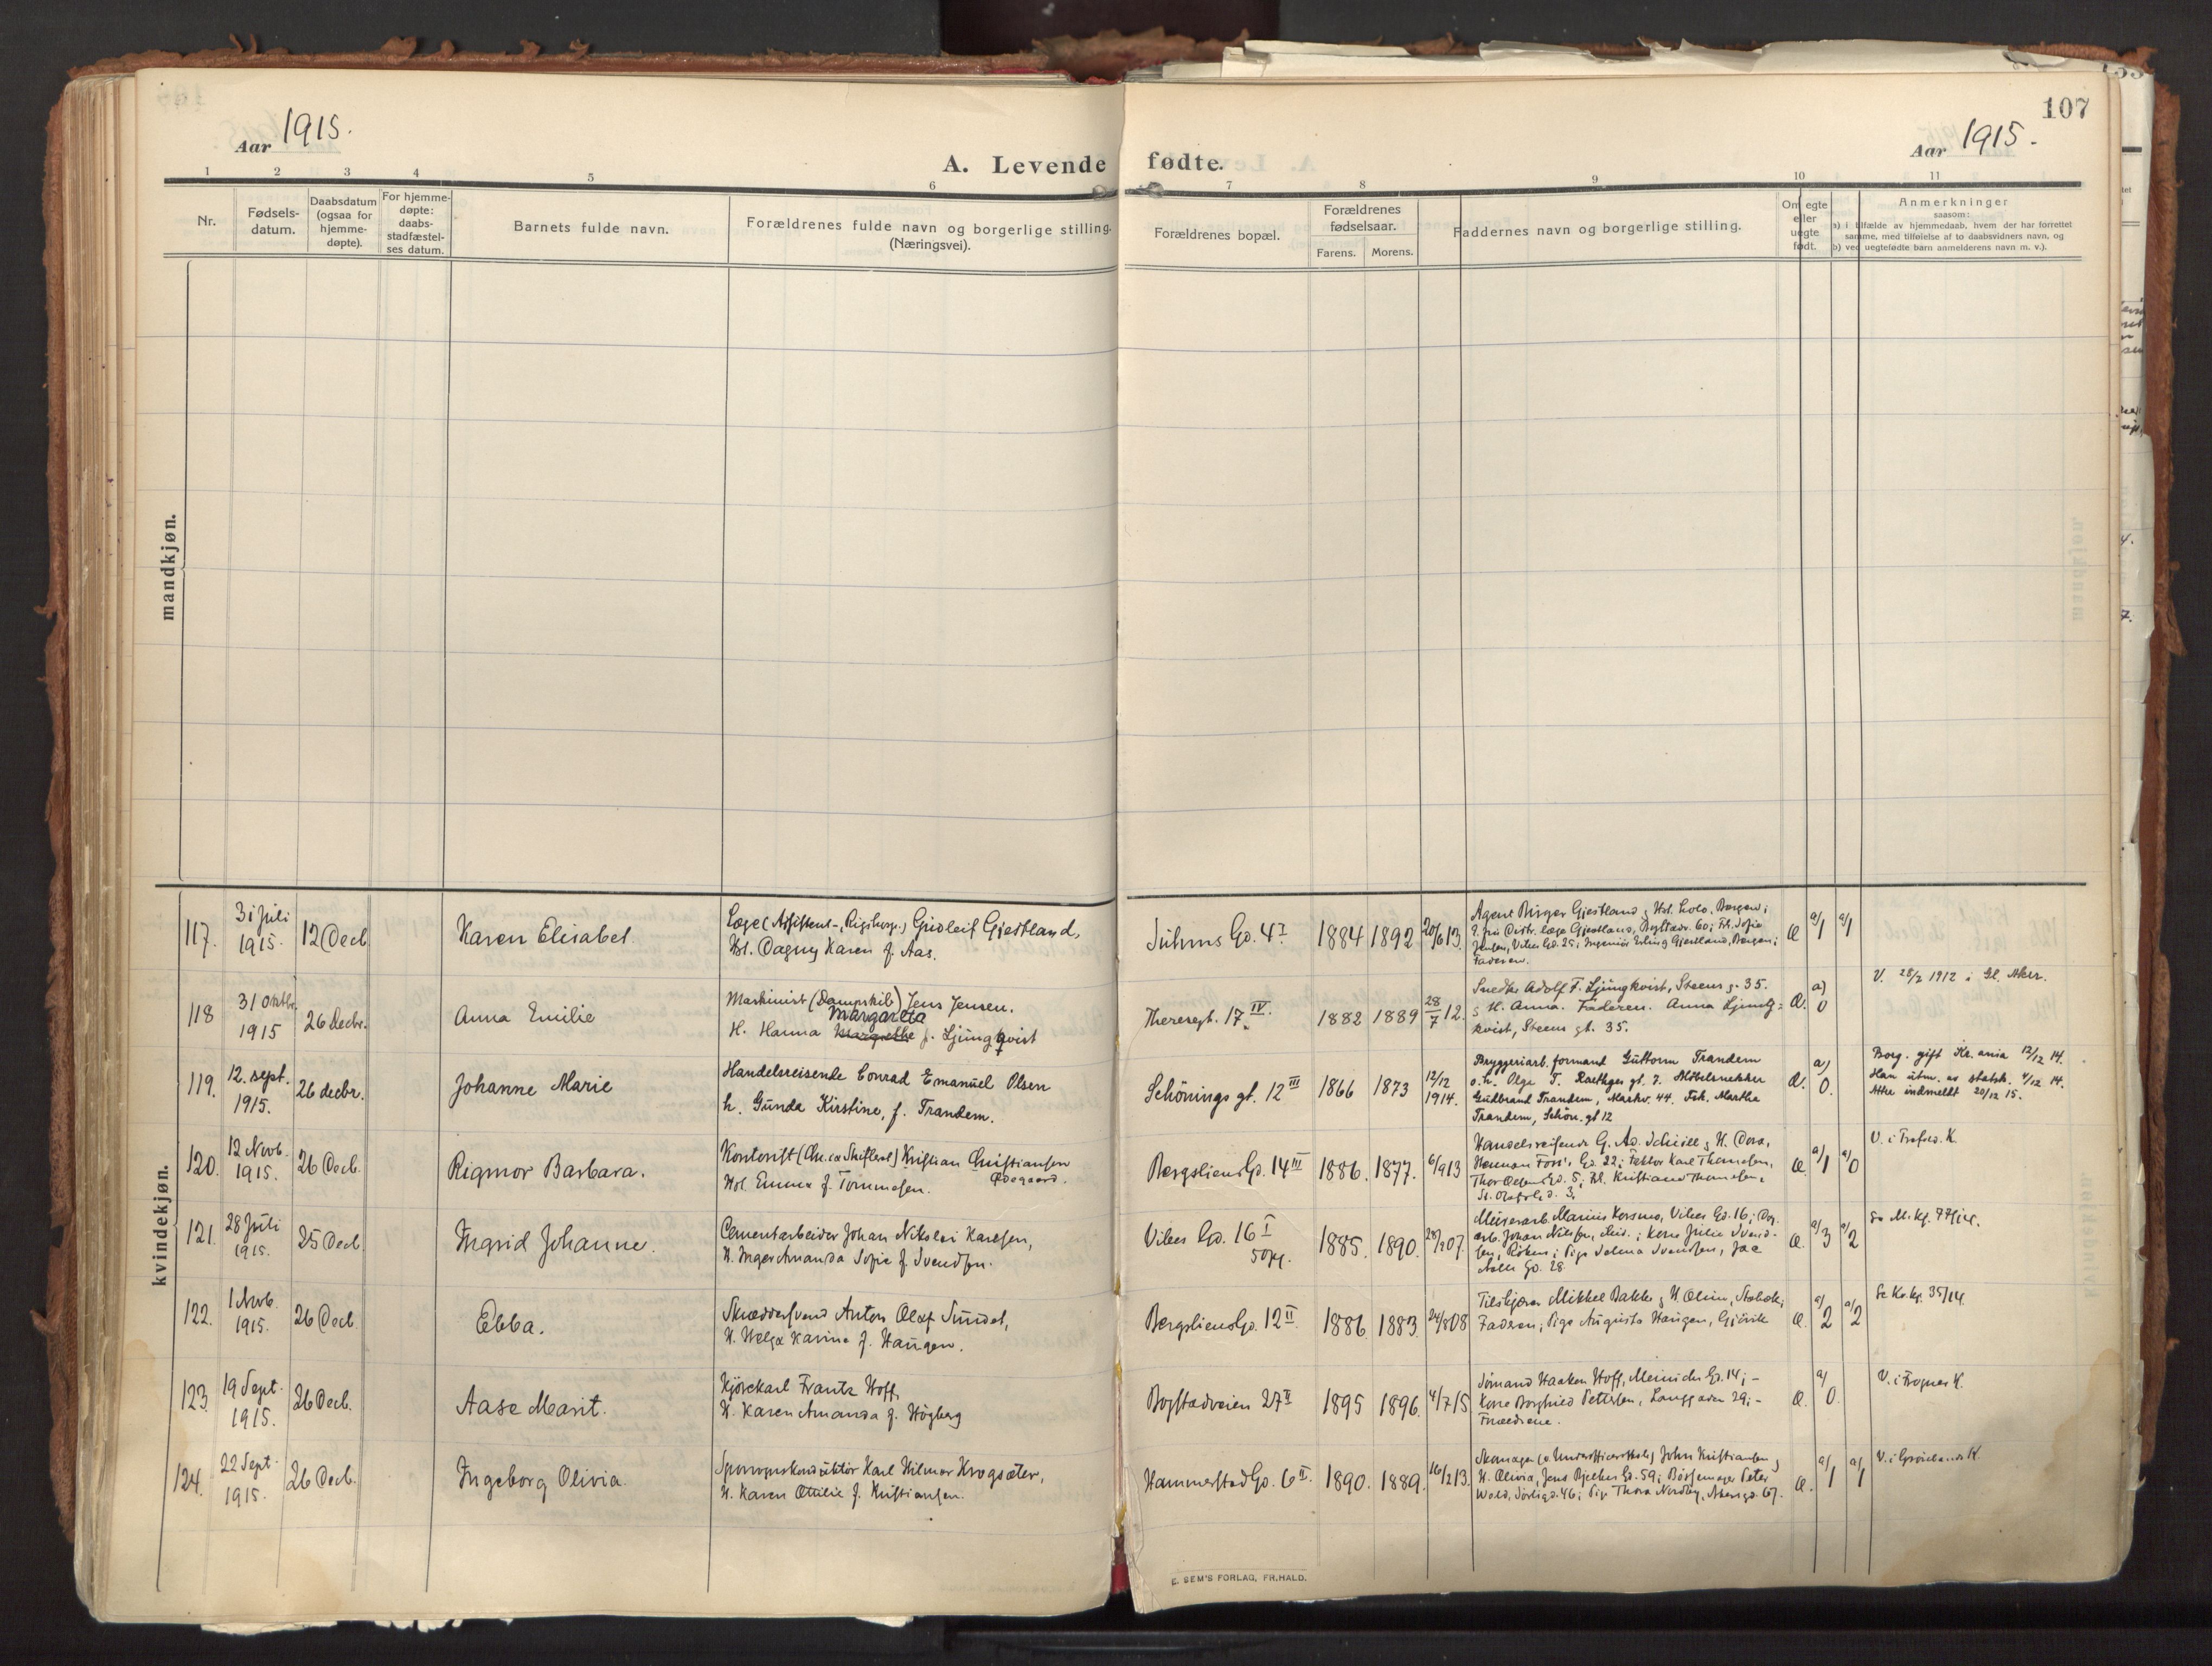 107
Aar 1915.
Aar 1915.
A. Levende fødte.
1 2 3 4 5 6 7 8 9 10 11
Nr.
Fødsels-
datum.
Daabsdatum
(ogsaa for
hjemme-
døpte).
For hjemme-
døpte:
daabs-
stadfæstel-
ses datum.
Barnets fulde navn.
Forældrenes fulde navn og borgerlige stilling.
(Næringsvei).
Forældrenes bopæl.
Forældrenes
fødselsaar.
Farens. Morens.
Faddernes navn og borgerlige stilling.
Om egte
eller
uegte
født.
Anmerkninger
saasom:
a) i tilfælde av hjemmedaab, hvem der har forrettet
samme, med tilføielse af to daabsvidners navn, og
b) ved uegtefødte barn anmelderens navn m. v.).
mandkjøn.
kvindekjøn.
117.
31 juli
1915.
12 Decb
Karen Elisabet.
Læge (Assistent-, Rigshosp.) Gudleif Gjestland,
Hst. Dagny Karen f. Aas.
Suhms Gd. 4 I
1884 1892 20/6 13.
Agent Birger Gjestland, Hst. Bergen;
Distr. læge Gjestland, Bogstadv. 60; Frk. Sofie
Jensen, Vibes Gd. 25; Ingeniør Erling Gjestland, Bergen;
Faderen.
Æ a/1 a/1
118
31 oktbr.
1915
26 decbr.
Anna Emilie
Maskinist (Dampskib) Jens Jensen.
Margareta
H. Hanna Margrethe f. Ljungqvist
Theresegt. 17 IV.
1882 1889 28/7 12.
Snedker Adolf F. Ljungkvist, Steens g. 35.
H. Anna. Faderen. Anna Ljung=
kvist, Steens gt. 35.
Æ. a) 0
V. 28/7 1912 i Gl. Aker.
119.
12. sept.
1915.
26 decbr.
Johanne Marie
Handelsreisende Conrad Emanuel Olsen
h. Gunda Kirstine, f. Trandem.
Schönings gt. 12 III
1866 1873 12/12 1914.
Bryggeriarb. formand Guttorm Trandem
o. h. Olga T. gt. 7. Møbelsnekker
Gudbrand Trandem, Markv. 44. Frk. Martha
Trandem, Schön. gt 12
Æ. a) 0.
Borg. gift Kr.ania 12/12 14.
Han utm. av statsk. 4/12 14.
Atter indmeldt 20/12 15.
120.
12 Novb.
1915.
26 Decb.
Rigmor Barbara.
Kontorist Kristian Christiansen
Ødegaard.
Hst. Emma f. Tommesen.
Bergsliens Gd. 14 III
1886. 1877. 6/9 13
Handelsreisende G. Ad. H. Dora,
Herman Foss's Gd. 22; Faktor Karl Thomesen,
Thor Olsens Gd. 5; Kristiane Thomesen,
St. Olafs Gd. 3.
Æ a/1 a/0
V. i Trefold. K.
121.
28 Juli
1915.
25 Decb
Ingrid Johanne.
Cementarbeider Johan Nikolai Karlsen,
H. Inger Amanda Sofie f. Svendsen.
Vibes Gd. 16 I
1885. 1890. 28/2 07.
Murerarb. Marius Korsmo, Vibes Gd. 16;
arb. Johan Nilsen, ibid.; Kone Julie Svend-
sen, Röken; Pige Selma Svendsen, Jac
Aalls Gd. 28
Æ. a/3 a/2
Se M. kj. 77/14.
122.
1 Novb.
1915.
26 Decb.
Ebba.
Skræddersvend Anton Olaf Sundet,
H. Helga Karine f. Haugen.
Bergsliens Gd. 12 II.
1886 1883. 24/8 08
Tilskjærer Mikkel Bakke, H.
Faderen; Pige Augusta Haugen, Gjövik
Æ. a/2 a/2
Se Kv. kj. 35/14.
123.
19 Sept.
1915.
26 Decb.
Aase Marit.
Kjörekarl Frantz Hoff,
H. Karen Amanda f. Högberg
Bogstadveien 27 II
1895 1896. 4/7 15
Sömand Haaken Hoff, Meinichs Gd. 14; -
Kone Borghild Pettersen, Langgaden 29; -
Forældrene.
Æ. a/0.
V. i Frogner K.
124.
22 Sept.
1915.
26 Decb.
Ingeborg Olivia.
Sporvognskonduktör Karl Hilmar Krogsæter,
H. Karen Otilie f. Kristiansen.
Hammerstad Gd. 6 II.
1890. 1889. 16/2 13.
Skomager John Kristiansen,
H. Olivia, Jens Bjelkes Gd. 59; Börsemager Peter
Wold, Sörligd. 46; Pige Thora Nordby, Akersgd. 67.
Æ. a/1 a/1
V. i Grönlands K.
E. SEM'S FORLAG, FR.HALD.